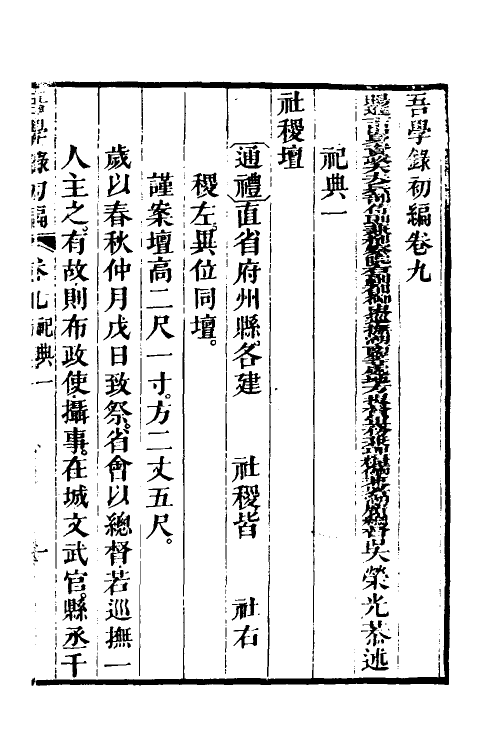 吾學錄初編卷九
吳榮光恭述
祀典一
社稷壇
通禮直省府州縣各建　社稷皆　社右
稷左。異位同壇。
謹案壇高二尺一寸。方二丈五尺。
歲以春秋仲月戊日致祭。省會以總督若巡撫一
人主之。有故則布政使攝事。在城文武官。縣丞千
吾學錄初編　卷九祀典一　一